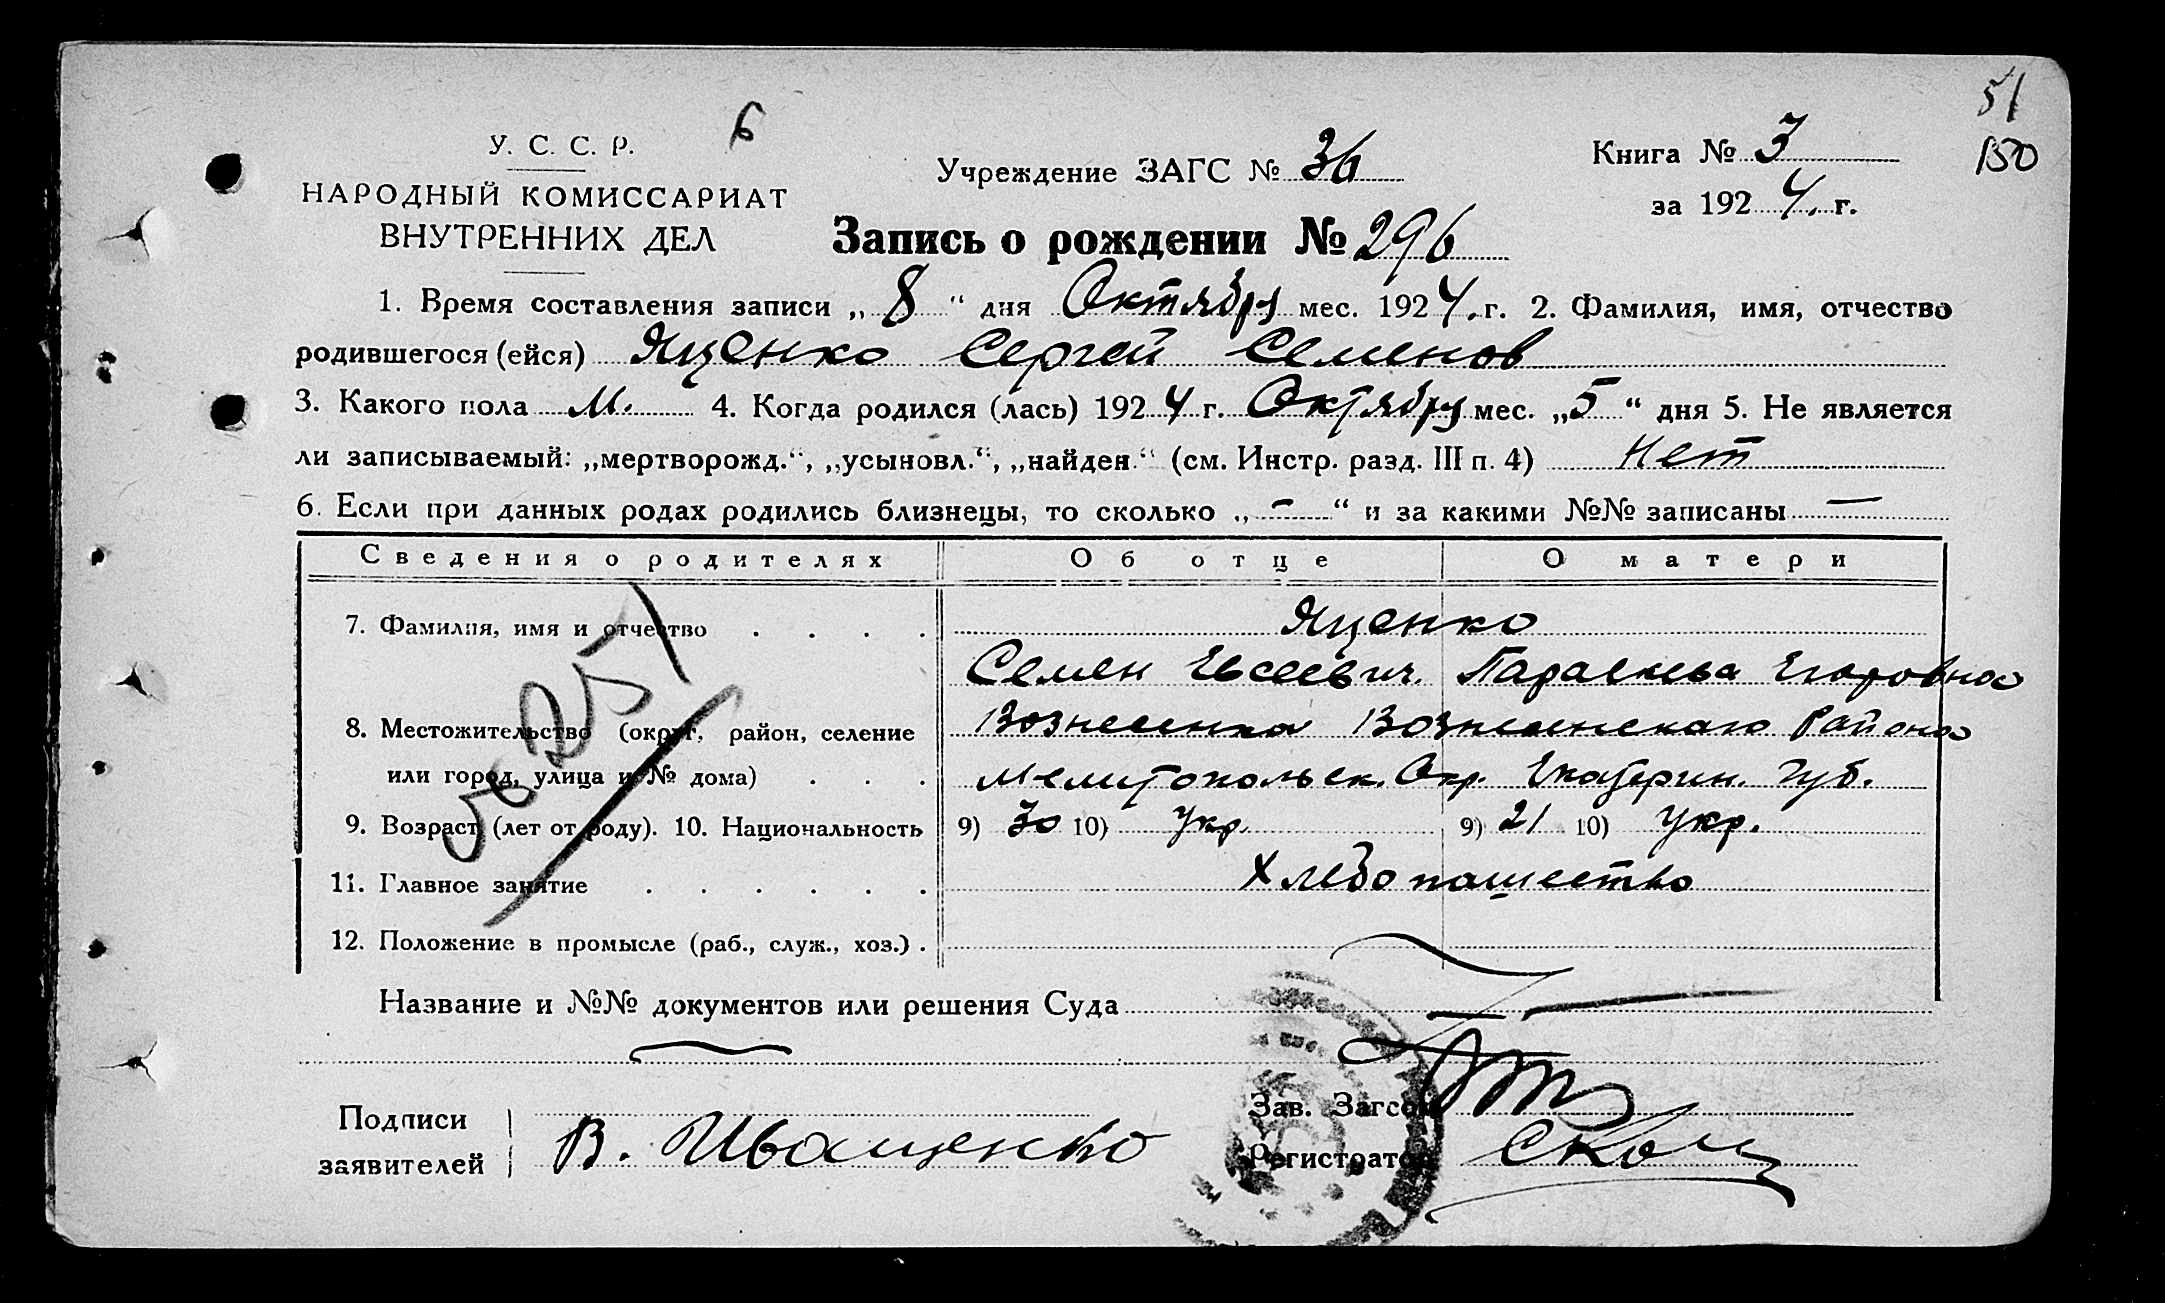 51
150
6
У. С. С. Р.
НАРОДНЫЙ КОМИССАРИАТ
ВНУТРЕННИХ ДЕЛ
Учреждение ЗАГС № 36
Книга № 3
за 1924. г.
Запись о рождении № 296
1. Время составления записи „ 8 “ дня Октября мес. 1924. г. 2. Фамилия, имя, отчество
родившегося (ейся) Яценко Сергей Семенов
3. Какого пола М. 4. Когда родился (лась) 1924 г. Октября мес. „5“ дня 5. Не является
ли записываемый: „мертворожд.“, „усыновл.“, „найден.“ (см. Инстр. разд. III п. 4) Нет
6. Если при данных родах родились близнецы, то сколько „ - “ и за какими №№ записаны —
Сведения о родителях Об отце О матери
7. Фамилия, имя и отчество . . . . Яценко
Семен Евсеевич. Параскева Егоровна
8. Местожительство (округ, район, селение Вознесенка Вознесенскаго Района
или город, улица и № дома) . . . Мелитопольск. Окр. Екатерин. Губ.
9. Возраст (лет от роду). 10. Национальность 9) 30 10) Укр. 9) 21 10) Укр.
11. Главное занятие . . . . . . Хлебопашество
12. Положение в промысле (раб., служ., хоз.) .
Название и №№ документов или решения Суда
Подписи
заявителей
В. Иващенко
Зав. Загсом
Регистратор